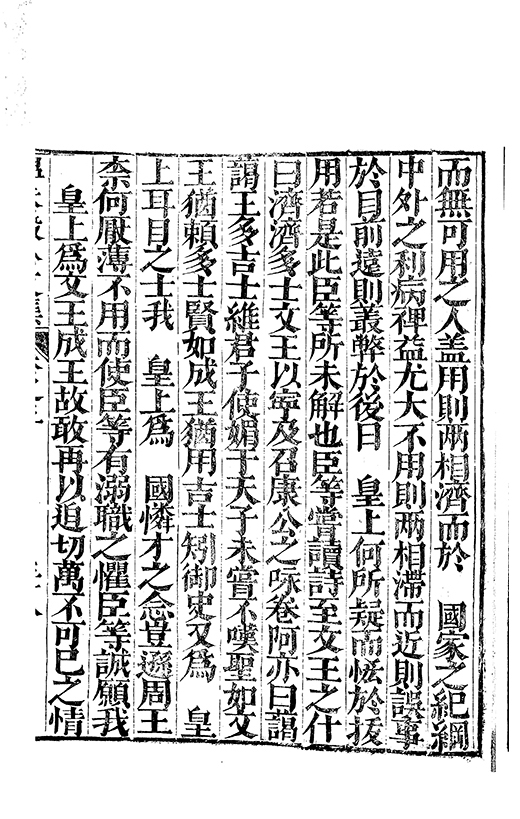 而無可用之人盖用則两相濟而於　國家之紀綱
中外之利病裨益尤大不用則两相滯而近則誤事
於目前遠則叢弊於後日　皇上何所疑而恡於拔
用若是此臣等所未解也臣等嘗讀詩至文王之什
曰濟濟多士文王以寧及召康公之咏卷阿亦曰藹
藹王多吉士維君子使媚于天子未嘗不嘆聖如文
王猶賴多士賢如成王猶用吉士矧御史又爲　皇
上耳目之士我　皇上爲　國憐才之念豈遜周王
柰何厭薄不用而使臣等有溺職之懼臣等誠願我
皇上爲文王成王故敢再以迫切萬不可已之情